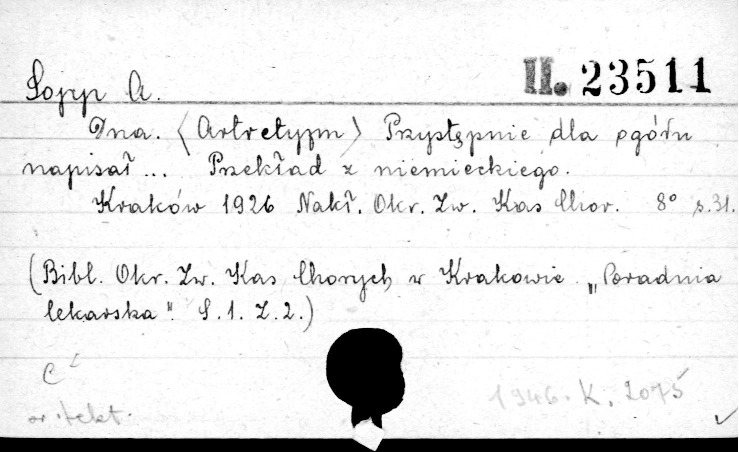 Sopp A.
II. 23511
Dna. (Artretyzm) Przystępnie dla ogółu
napisał... Przekład z niemieckiego.
Kraków 1926 Nakł. Okr. Zw. Kas Chor. 8° s. 31.
(Bibl. Okr. Zw. Kas Chorych w Krakowie. „Poradnia
lekarska". S. 1. Z. 2.)
C
1946. K. 2075